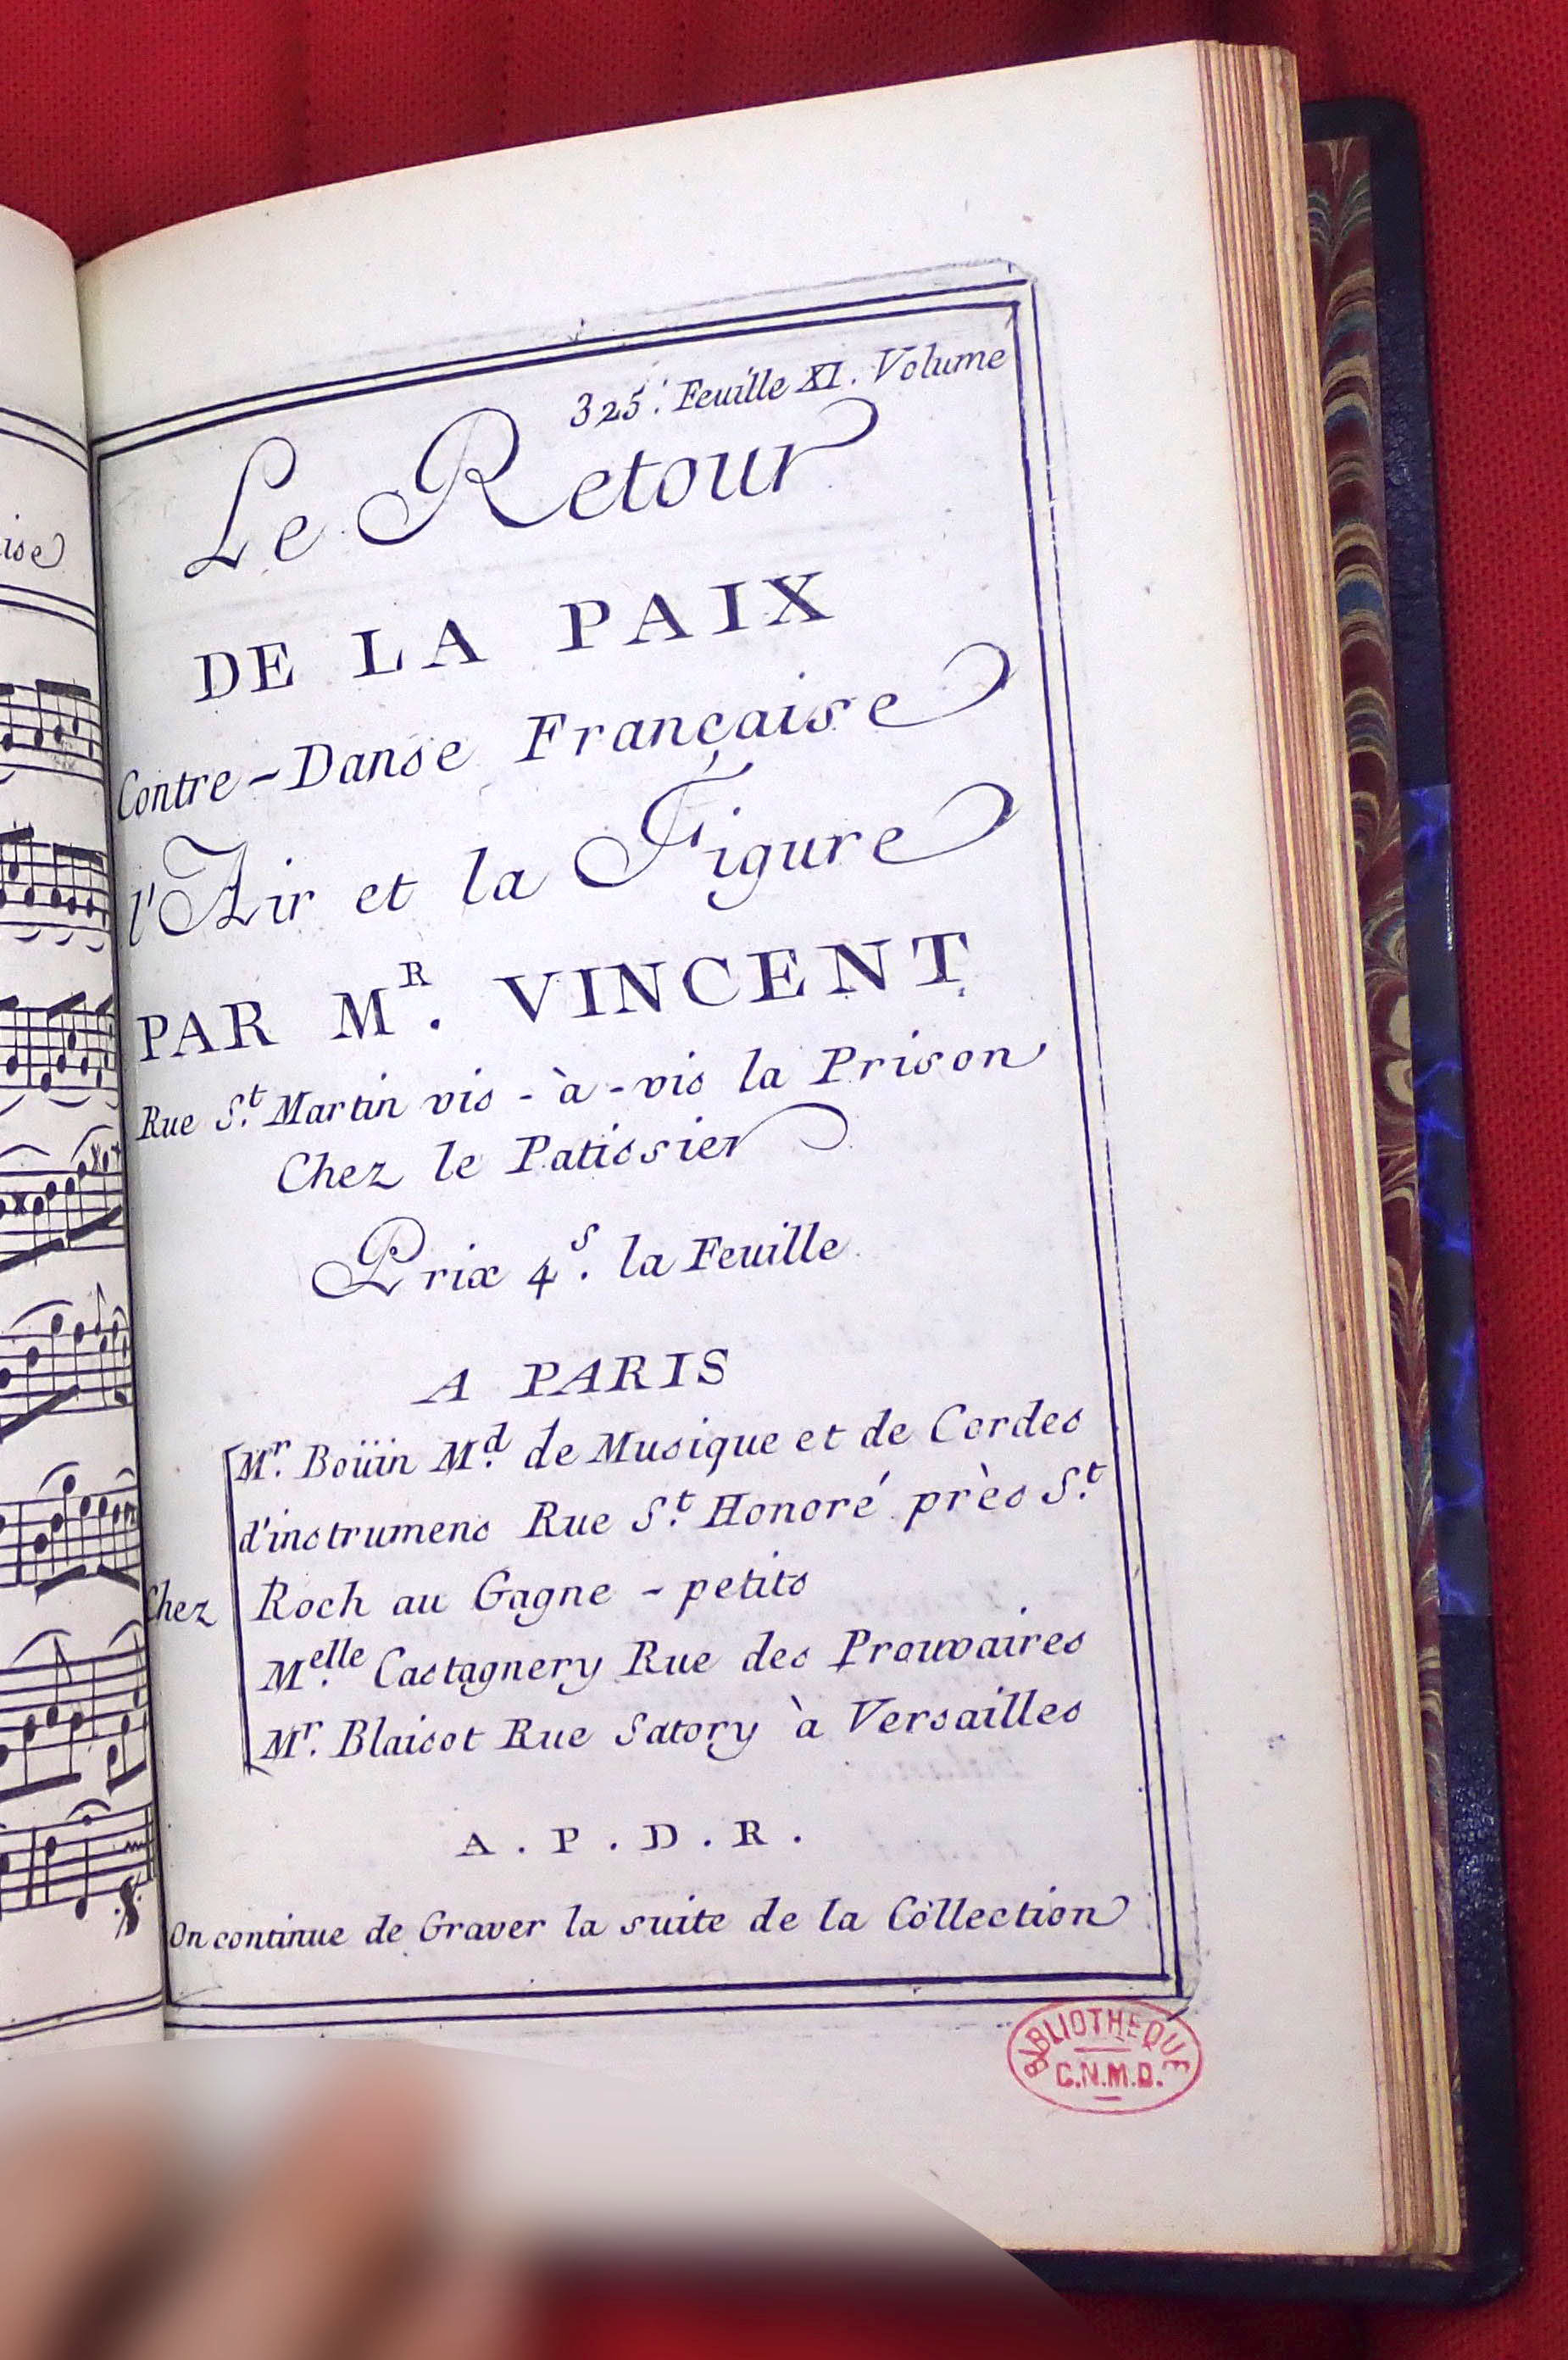 325.e Feuille XI. Volume
Le Retour
DE LA PAIX
Contre-Danse Française
l'Air et la Figure
PAR M.R VINCENT
Rue S.t Martin vis-à-vis la Prison
Chez le Patissier
Prix 4.s la Feuille
A PARIS
M.r Boüin M.d de Musique et de Cordes
d'instrumens Rue S.t Honoré près S.t
Chez Roch au Gagne-petits
M.elle Castagnery Rue des Prouvaires
M.r Blaisot Rue Satory à Versailles
A.P.D.R.
On continue de Graver la suite de la Collection
BIBLIOTHEQUE
C.N.M.D.